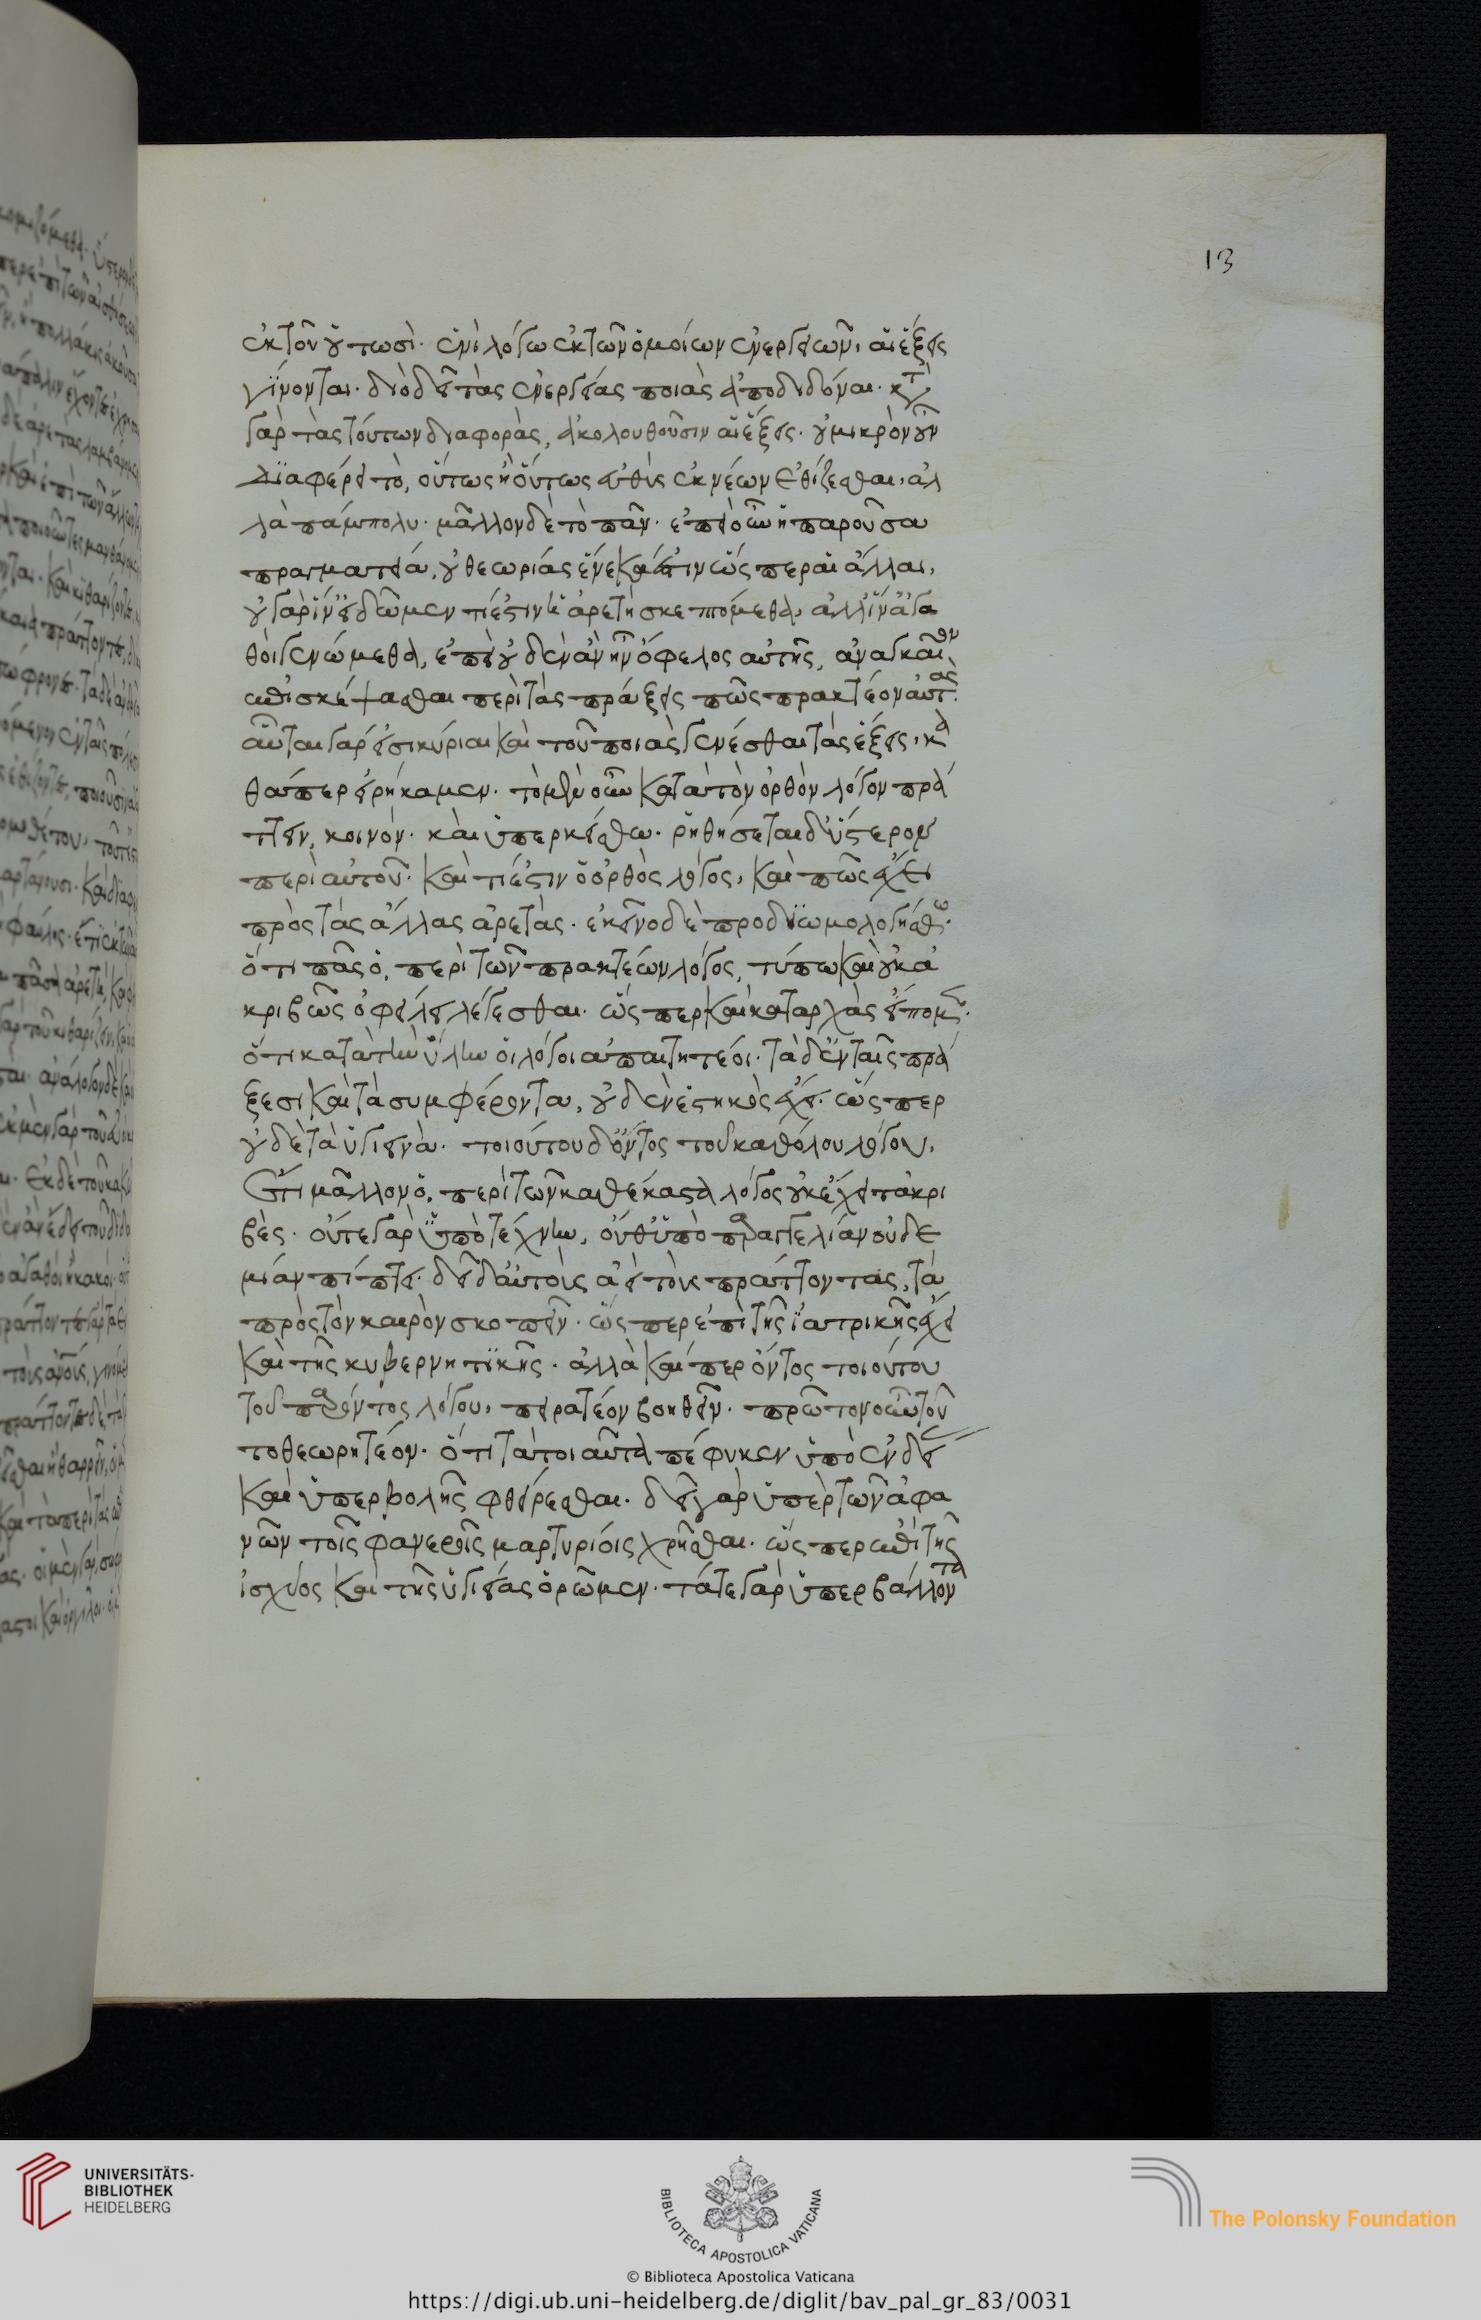 13
ἐκ τοῦ οὑτωσὶ. ἑνὶ λόγω ἐκ τῶν ὁμοίων ἐνεργειῶν, αἱ ἕξεις
γίνονται. διὸ δεῖ τὰς ἐνεργείας ποιὰς ἀποδιδόναι. κατὰ
γὰρ τὰς τούτων διαφορὰς, ἀκολουθοῦσιν αἱ ἕξεις. οὐ μικρὸν οὖν
διαφέρει τὸ, οὕτως ἢ οὕτως εὐθὺς ἐκ νέων ἐθίζεσθαι, ἀλ
λὰ πάμπολυ. μᾶλλον δὲ τὸ πᾶν. ἐπεὶ οὖν ἡ παροῦσα
πραγματεία, οὐ θεωρίας ἕνεκά ἐστιν ὥσπερ αἱ ἄλλαι,
οὐ γὰρ ἵν' εἰδῶμεν τί ἐστιν ἡ ἀρετὴ σκεπτόμεθα, ἀλλ' ἵν' ἀγα
θοὶ γενώμεθα, ἐπεὶ οὐδὲν ἂν ἦν ὄφελος αὐτῆς, ἀναγκαῖον
ἐπισκέψασθαι περὶ τὰς πράξεις πῶς πρακτέον αὐτάς.
αὗται γάρ εἰσι κύριαι καὶ τοῦ ποιὰς γενέσθαι τὰς ἕξεις, κα
θάπερ εἰρήκαμεν. τὸ μὲν οὖν κατὰ τὸν ὀρθὸν λόγον πρά
ττειν, κοινὸν. καὶ ὑπερκείσθω. ῥηθήσεται δ' ὕστερον
περὶ αὐτοῦ. καὶ τί ἐστιν ὁ ὀρθὸς λόγος, καὶ πῶς ἔχει
πρὸς τὰς ἄλλας ἀρετάς. ἐκεῖνο δὲ προδιωμολογήσθω.
ὅτι πᾶς ὁ, περὶ τῶν πρακτέων λόγος, τύπω καὶ οὐκ ἀ
κριβῶς ὀφείλει λέγεσθαι. ὥσπερ καὶ κατ' ἀρχὰς εἴπομεν.
ὅτι κατὰ τὴν ὕλην οἱ λόγοι ἀπαιτητέοι. τὰ δ' ἐν ταῖς πρά
ξεσι καὶ τὰ συμφέροντα, οὐδὲν ἑστηκὸς ἔχει. ὥσπερ
οὐδὲ τὰ ὑγιεινὰ. τοιούτου δ' ὄντος τοῦ καθόλου λόγου,
ἔτι μᾶλλον ὁ, περὶ τῶν καθέκαστα λόγος οὐκ ἔχει τἀκρι
βὲς. οὔτε γὰρ ὑπὸ τέχνην, οὔθ' ὑπὸ παραγγελίαν οὐδε
μίαν πίπτει. δεῖ δ' αὐτοὺς ἀεὶ τοὺς πράττοντας, τὰ
πρὸς τὸν καιρὸν σκοπεῖν. ὥσπερ ἐπὶ τῆς ἰατρικῆς ἔχει
καὶ τῆς κυβερνητικῆς. ἀλλὰ καίπερ ὄντος τοιούτου
τοῦ παρόντος λόγου, πειρατέον βοηθεῖν. πρῶτον οὖν τοῦ
το θεωρητέον. ὅτι τὰ τοιαῦτα πέφυκεν ὑπὸ ἐνδεί
καὶ ὑπερβολῆς φθείρεσθαι. δεῖ γὰρ ὑπὲρ τῶν ἀφα
νῶν τοῖς φανεροῖς μαρτυρίοις χρῆσθαι. ὥσπερ ἐπὶ τῆς
ἰσχύος καὶ τῆς ὑγιείας ὁρῶμεν. τά τε γὰρ ὑπερβάλλοντα
UNIVERSITÄTS-
BIBLIOTHEK
HEIDELBERG
BIBLIOTECA APOSTOLICA VATICANA
© Biblioteca Apostolica Vaticana
The Polonsky Foundation
https://digi.ub.uni-heidelberg.de/diglit/bav_pal_gr_83/0031